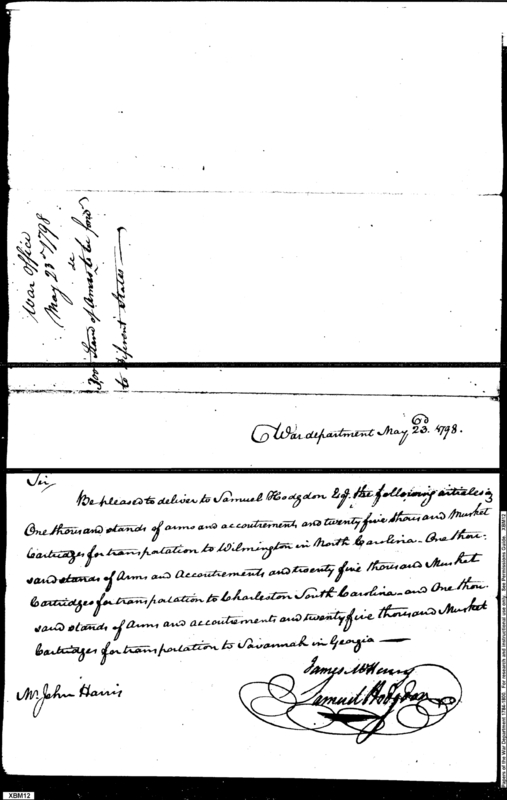 War Office
May 23d 1798
Stand of Arms &c to be forwd
to different States
War department May 23.d 1798.
Sir
Be pleased to deliver to Samuel Hodgdon Esq. the following articles
One thousand stands of arms and accoutrements and twenty five thousand Musket
Cartridges for transportation to Wilmington in North Carolina - One thou-
sand stands of Arms and Accoutrements and twenty five thousand Musket
Cartridges for transportation to Charleston South Carolina - and One thou-
sand stands of Arms and accoutrements and twenty five thousand Musket
Cartridges for transportation to Savannah in Georgia
James McHenry
Samuel Hodgdon
Mr. John Harris
XBM12